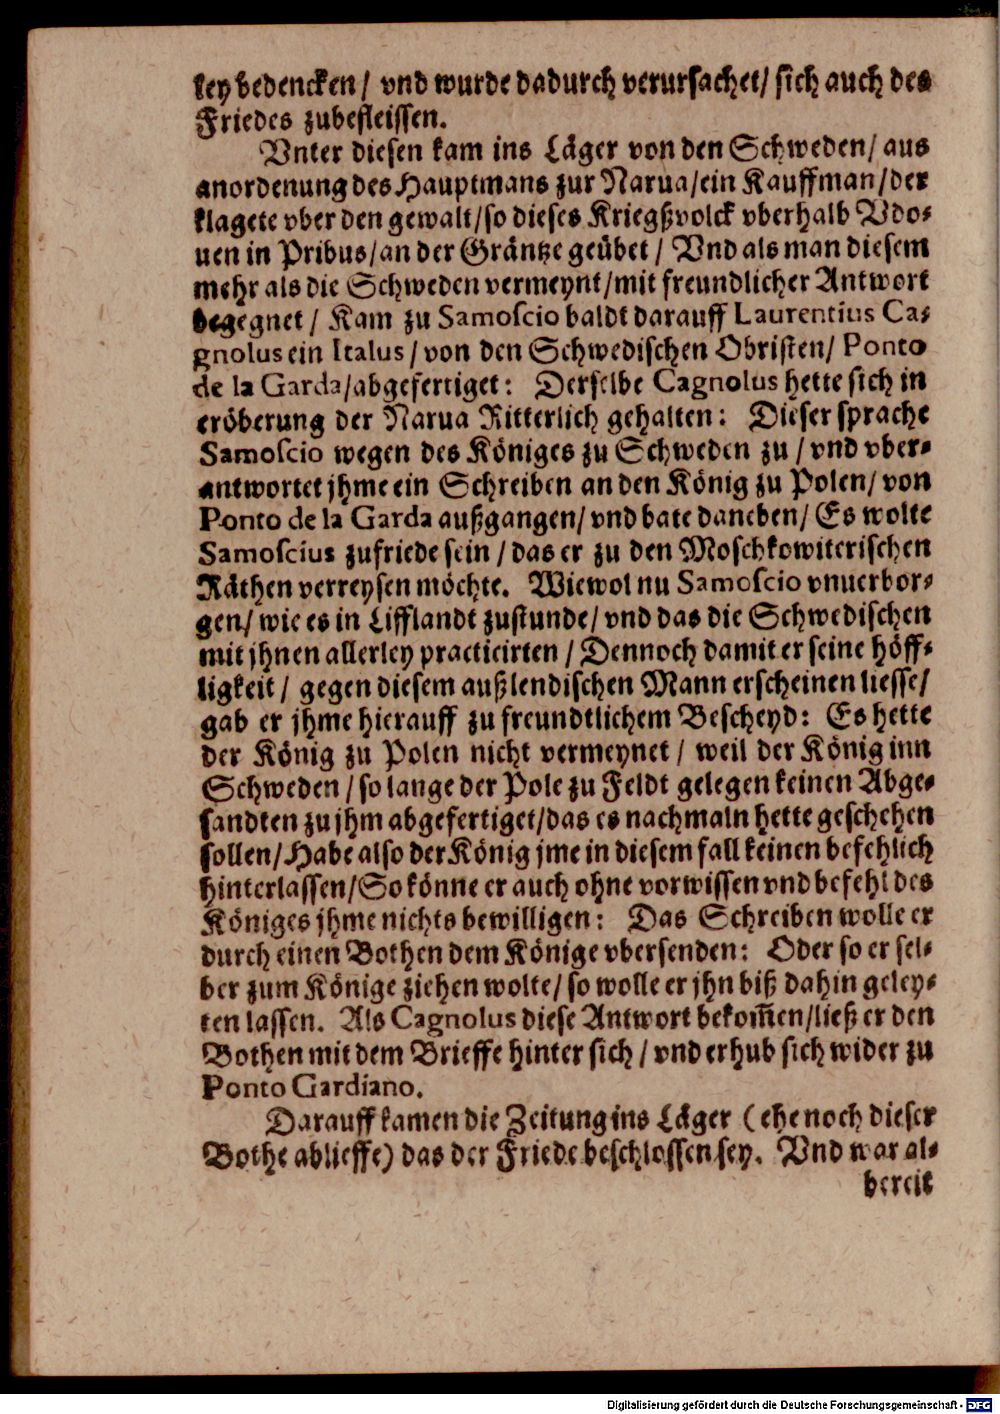 ley bedencken / vnd wurde dadurch verursachet / sich auch des
Friedes zubefleissen.
Vnter diesen kam ins Läger von den Schweden / aus
anordenung des Hauptmans zur Narua / ein Kauffman / der
klagete vber den gewalt / so dieses Kriegßvolck vberhalb Vdo-
uen in Pribus / an der Gräntze geübet / Vnd als man diesem
mehr als die Schweden vermeynt / mit freundlicher Antwort
begegnet / Kam zu Samoscio baldt darauff Laurentius Ca-
gnolus ein Italus / von den Schwedischen Obristen / Ponto
de la Garda / abgefertiget: Derselbe Cagnolus hette sich in
eröberung der Narua Ritterlich gehalten: Dieser sprache
Samoscio wegen des Königes zu Schweden zu / vnd vber-
antwortet jhme ein Schreiben an den König zu Polen / von
Ponto de la Garda außgangen / vnd bate daneben / Es wolte
Samoscius zufriede sein / das er zu den Moschkowiterischen
Räthen verreysen möchte. Wiewol nu Samoscio vnuerbor-
gen / wie es in Lifflandt zustunde / vnd das die Schwedischen
mit jhnen allerley practicirten / Dennoch damit er seine höff-
ligkeit / gegen diesem außlendischen Mann erscheinen liesse /
gab er jhme hierauff zu freundtlichem Bescheyd: Es hette
der König zu Polen nicht vermeynet / weil der König inn
Schweden / so lange der Pole zu Feldt gelegen keinen Abge-
sandten zu jhm abgefertiget / das es nachmaln hette geschehen
sollen / Habe also der König jme in diesem fall keinen befehlich
hinterlassen / So könne er auch ohne vorwissen vnd befehl des
Königes jhme nichts bewilligen: Das Schreiben wolle er
durch einen Bothen dem Könige vbersenden: Oder so er sel-
ber zum Könige ziehen wolte / so wolle er jhn biß dahin geley-
ten lassen. Als Cagnolus diese Antwort bekom̃en / ließ er den
Bothen mit dem Brieffe hinter sich / vnd erhub sich wider zu
Ponto Gardiano.
Darauff kamen die Zeitung ins Läger ( ehe noch dieser
Bothe ablieffe ) das der Friede beschlossen sey. Vnd war al-
bereit
Digitalisierung gefördert durch die Deutsche Forschungsgemeinschaft - DFG